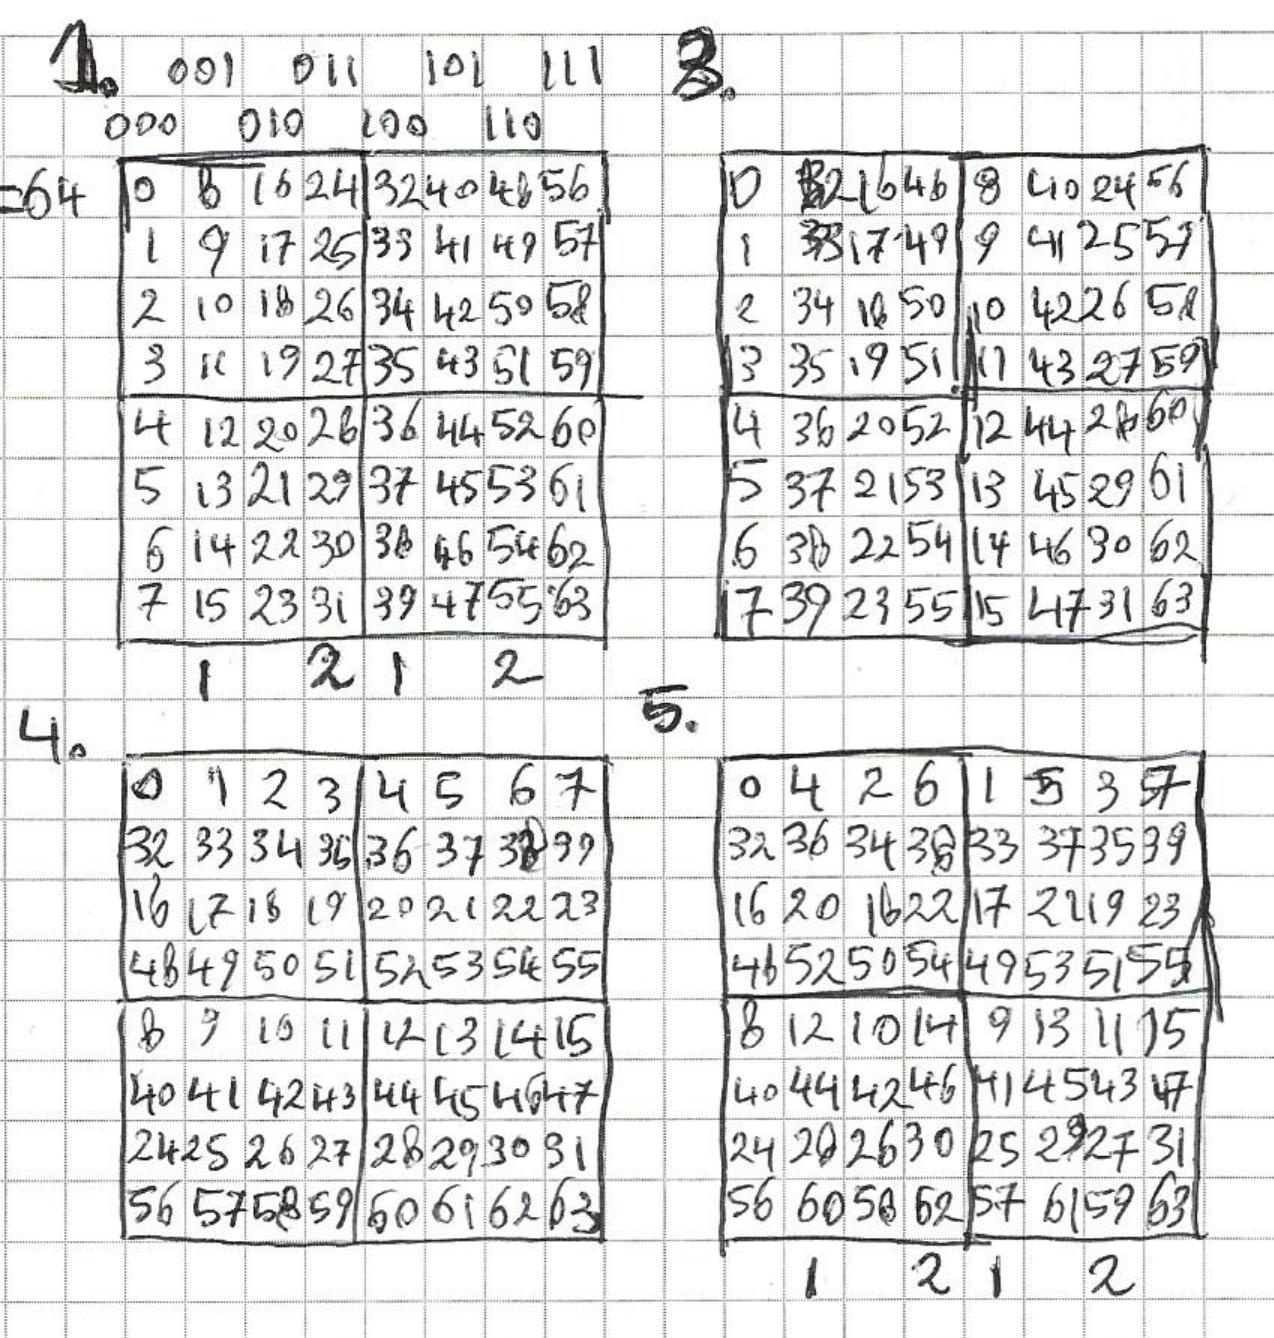 1.
001 011 101 111
000 010 100 110
=64
0 8 16 24 32 40 48 56
1 9 17 25 33 41 49 57
2 10 18 26 34 42 50 58
3 11 19 27 35 43 51 59
4 12 20 28 36 44 52 60
5 13 21 29 37 45 53 61
6 14 22 30 38 46 54 62
7 15 23 31 39 47 55 63
1 2 1 2
3.
0 32 16 48 8 40 24 56
1 33 17 49 9 41 25 57
2 34 18 50 10 42 26 58
3 35 19 51 11 43 27 59
4 36 20 52 12 44 28 60
5 37 21 53 13 45 29 61
6 38 22 54 14 46 30 62
7 39 23 55 15 47 31 63
4.
0 1 2 3 4 5 6 7
32 33 34 35 36 37 38 39
16 17 18 19 20 21 22 23
48 49 50 51 52 53 54 55
8 9 10 11 12 13 14 15
40 41 42 43 44 45 46 47
24 25 26 27 28 29 30 31
56 57 58 59 60 61 62 63
5.
0 4 2 6 1 5 3 7
32 36 34 38 33 37 35 39
16 20 18 22 17 21 19 23
48 52 50 54 49 53 51 55
8 12 10 14 9 13 11 15
40 44 42 46 41 45 43 47
24 28 26 30 25 29 27 31
56 60 58 62 57 61 59 63
1 2 1 2